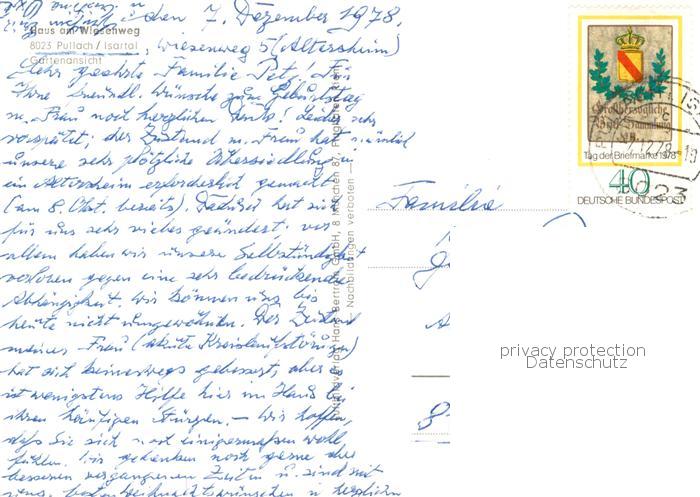 den 7. Dezember 1978.
Haus am Wiesenweg
8023 Pullach / Isartal
Gartenansicht
Wiesenweg 5 (Altersheim)
Sehr geehrte Familie
Ihre freundl. Wünsche zum Geburtstag
m. Frau noch herzlichen Dank! Leider sehr
verspätet; der Zustand m. Frau hat nämlich
unsere sehr plötzliche Übersiedlung in
ein Altersheim erforderlich gemacht
(am 8. Okt. bereits). Dadurch hat sich
für uns sehr vieles geändert: vor
allem haben wir unsere Selbständigkeit
verloren gegen eine sehr bedrückende
Abhängigkeit. Wir können uns bis
heute nicht umgewöhnen. Der Zustand
meiner Frau (akute Kreislaufstörungen)
hat sich keineswegs gebessert, aber es
ist wenigstens Hilfe hier im Haus bei
ihren häufigen Stürzen. – Wir hoffen,
daß Sie sich noch einigermaßen wohl
fühlen. Wir gedenken noch gerne der
besseren vergangenen Zeiten u. sind mit
besten Weihnachtswünschen u. herzlichen
Hans Bertram GmbH, 8 München 87, Flughafen Riem
Nachbildungen verboten
Familie
Großherzogliche
Tag der Briefmarke 1978
40
DEUTSCHE BUNDESPOST
privacy protection
Datenschutz